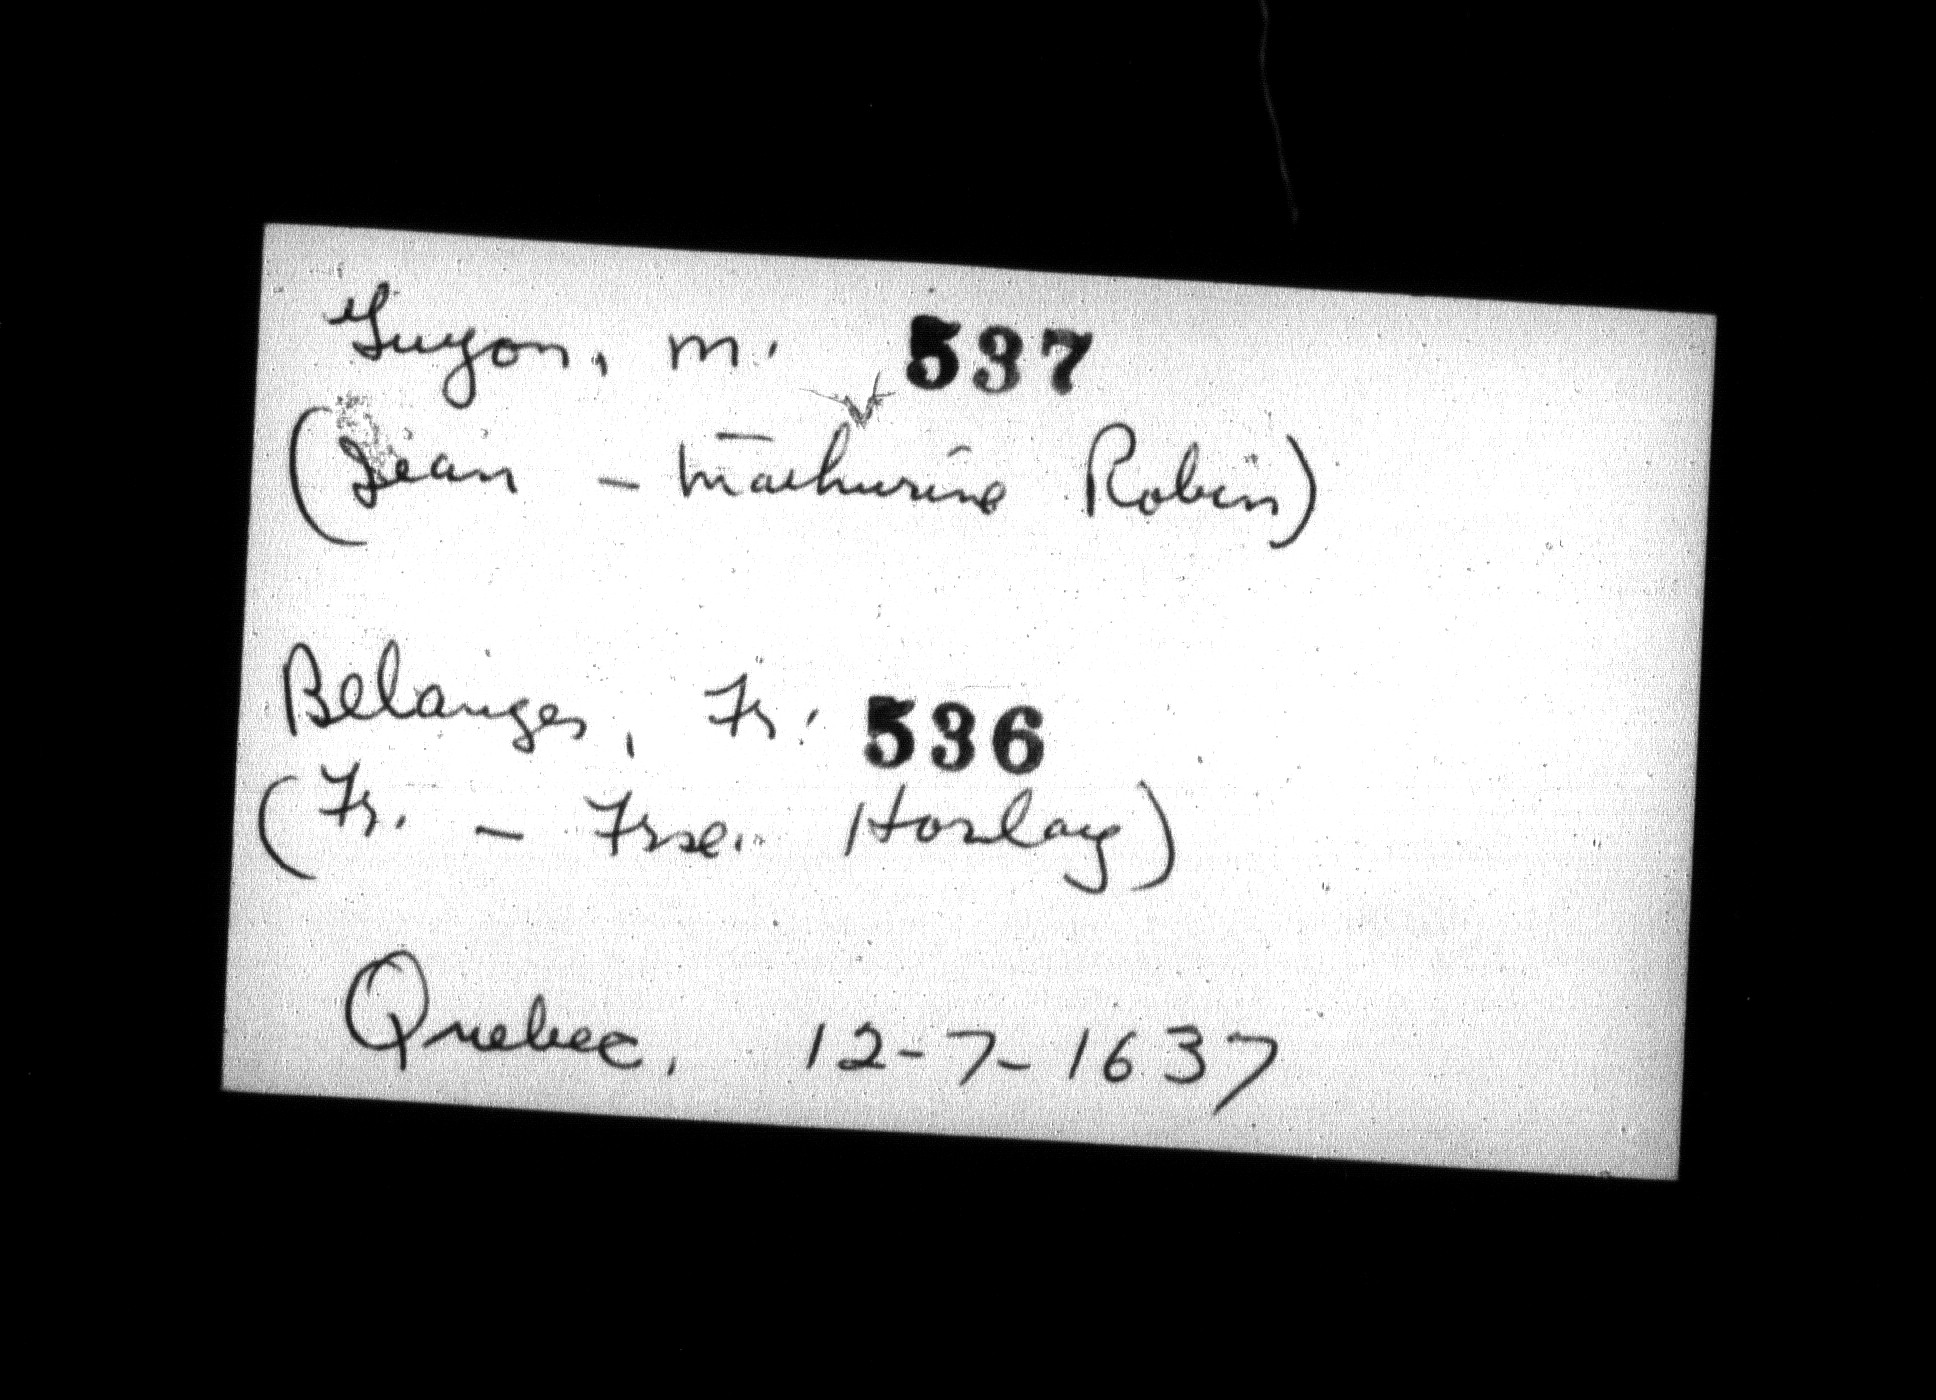 Guyon, M. 537
(Jean - Mathurine Robin)
Belanger, Fr. 536
(Fr. - Frse. Horlay)
Quebec, 12-7-1637